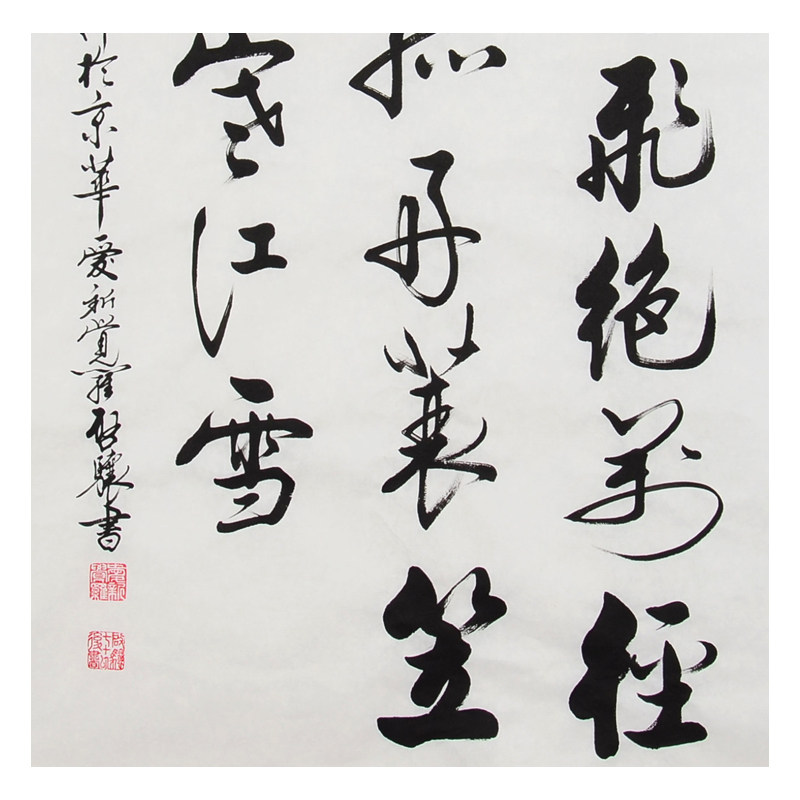 飛絕萬徑
孤舟蓑笠
寒江雪
於京華愛新覺羅啟驤書
愛新覺羅